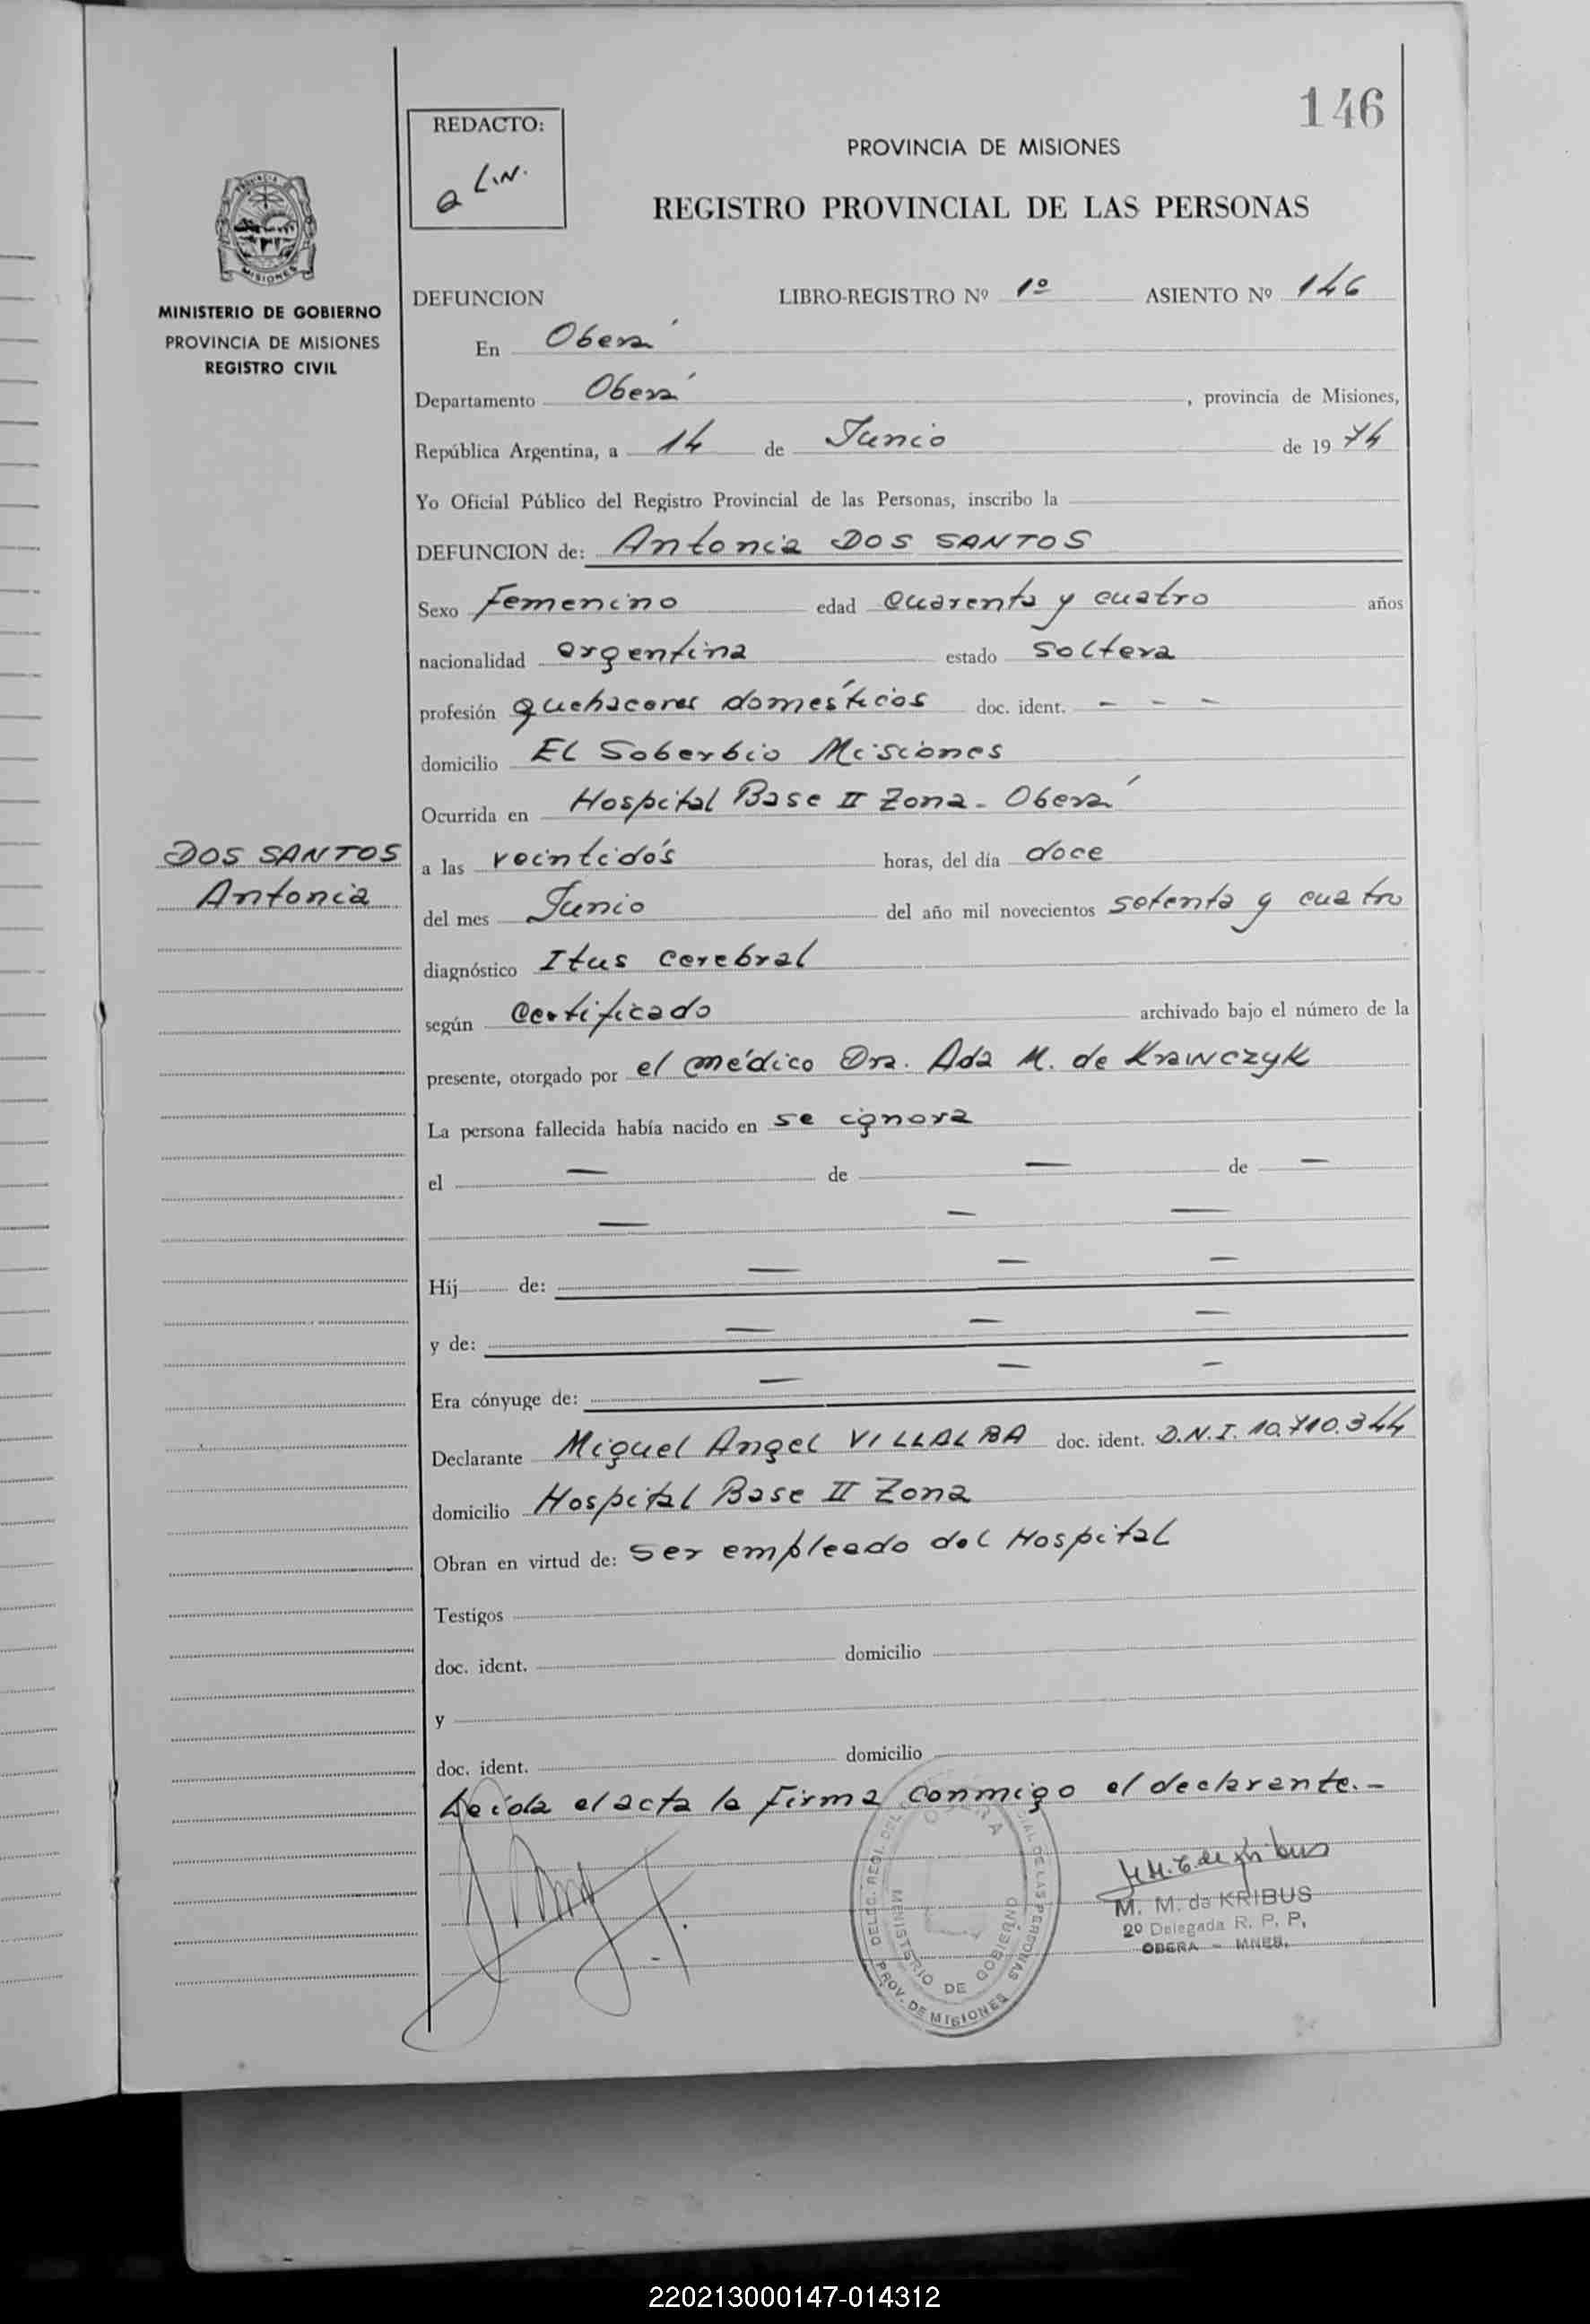 146
REDACTO:
L.N.
PROVINCIA DE MISIONES
REGISTRO PROVINCIAL DE LAS PERSONAS
PROVINCIA
MISIONES
MINISTERIO DE GOBIERNO
PROVINCIA DE MISIONES
REGISTRO CIVIL
DEFUNCION LIBRO-REGISTRO Nº 1º ASIENTO Nº 146
En Oberá
Departamento Oberá, provincia de Misiones,
República Argentina, a 14 de Junio de 1974
Yo Oficial Público del Registro Provincial de las Personas, inscribo la
DEFUNCION de: Antonia DOS SANTOS
Sexo Femenino edad cuarenta y cuatro años
nacionalidad argentina estado soltera
profesión quehaceres domésticos doc. ident. - - -
domicilio El Soberbio Misiones
Ocurrida en Hospital Base II Zona - Oberá
DOS SANTOS
Antonia
a las veintidós horas, del día doce
del mes Junio del año mil novecientos setenta y cuatro
diagnóstico Itus cerebral
según certificado archivado bajo el número de la
presente, otorgado por el médico Dra. Ada M. de Krawczyk
La persona fallecida había nacido en se ignora
el — de — de —
— — —
Hij de: — — —
y de: — — —
Era cónyuge de: — — —
Declarante Miguel Angel VILLALBA doc. ident. D.N.I. 10.710.344
domicilio Hospital Base II Zona
Obran en virtud de: Ser empleado del Hospital
Testigos
doc. ident. domicilio
y
doc. ident. domicilio
Leída el acta la firma conmigo el declarante.-
M. M. de KRIBUS
2º Delegada R. P. P.
OBERA - MNES.
MINISTERIO DE GOBIERNO
PROV. DE MISIONES
220213000147-014312